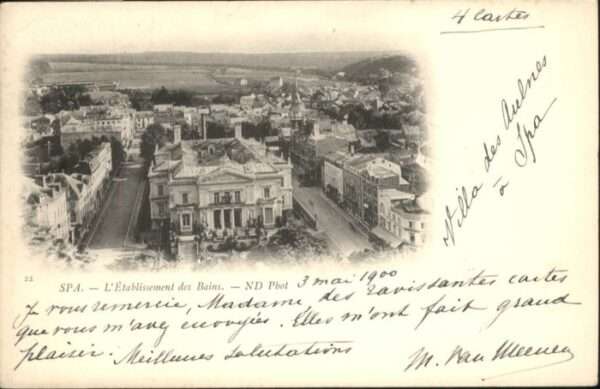 4 Cartes
Villa des Aulnes
à Spa
22
SPA. — L'Établissement des Bains. — ND Phot
3 mai 1900
Je vous remercie, Madame, des ravissantes cartes
que vous m'avez envoyées. Elles m'ont fait grand
plaisir. Meilleures salutations
M. Van Meenen